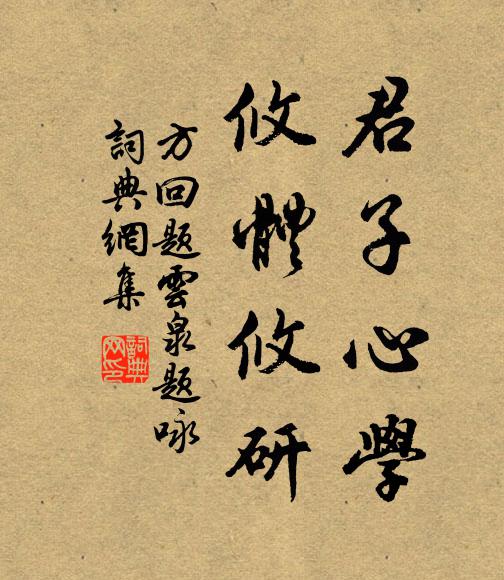 君子心學
攸體攸研
方回題雲泉題咏
詞典網集
詞典網印